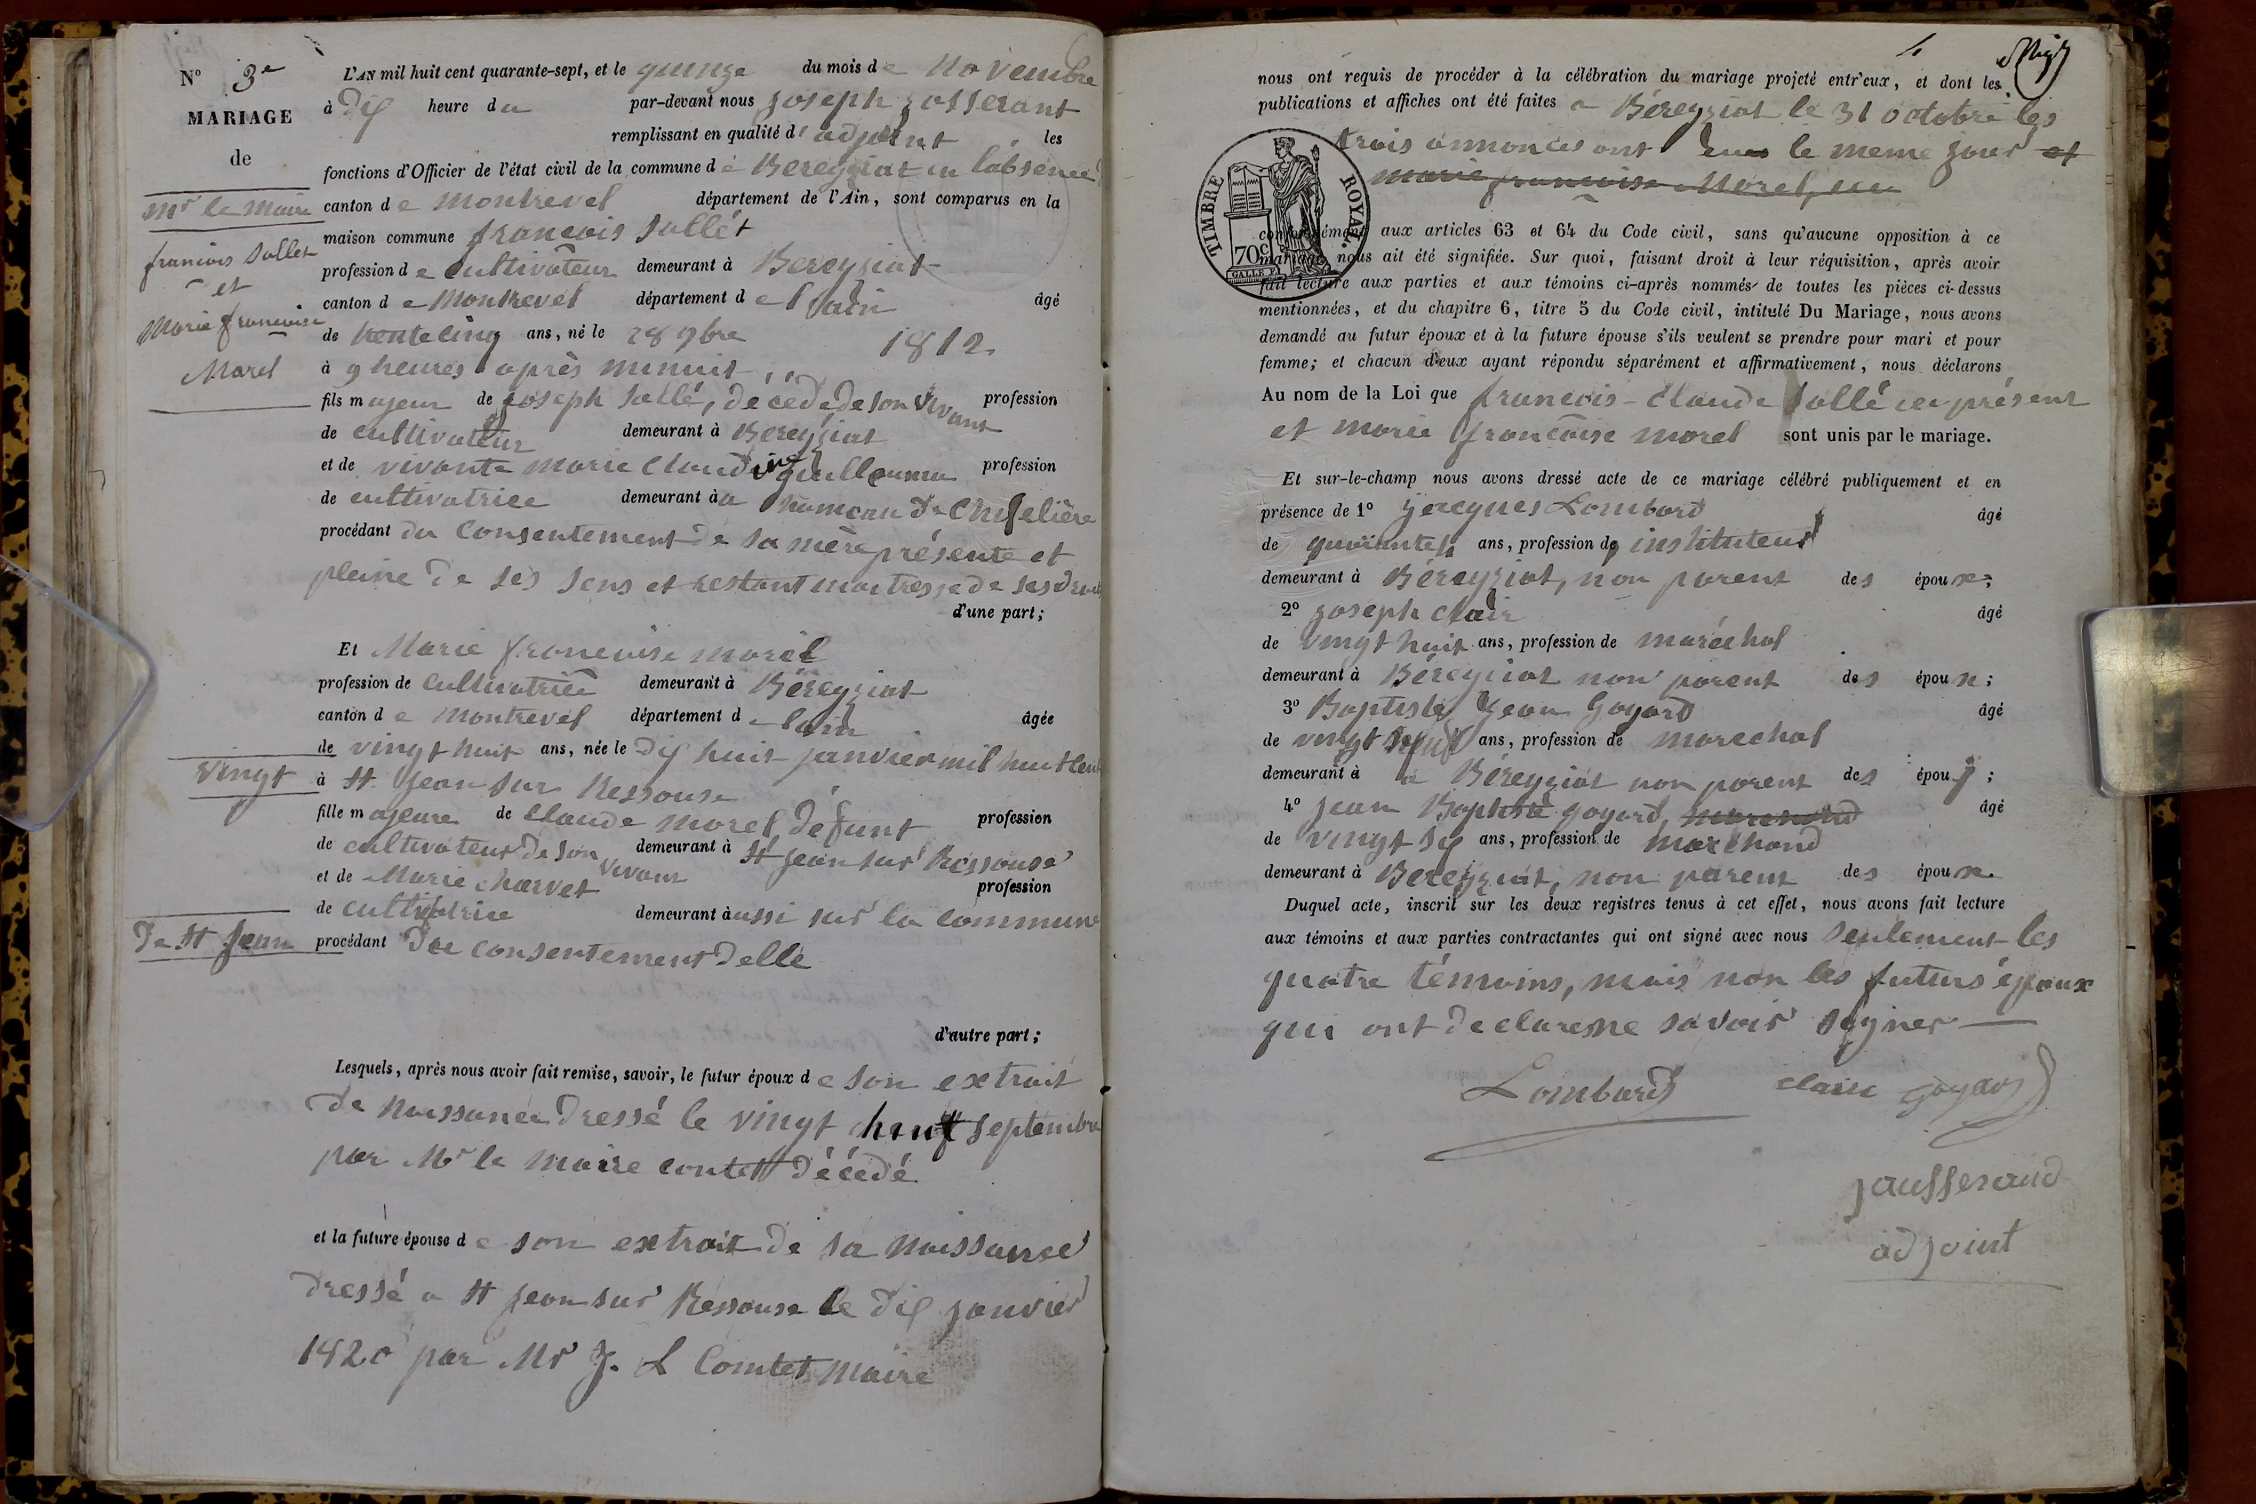 N° 3e
MARIAGE
de
mr le maire
francois Sallet
et
Marie francoise
Morel
vingt
de St Jean
L'AN mil huit cent quarante-sept, et le quinze du mois de Novembre
à dix heure du par-devant nous Joseph Josserant
remplissant en qualité d' adjoint les
fonctions d'Officier de l'état civil de la commune de Bereyziat en l'absence
canton de Montrevel département de l'Ain, sont comparus en la
maison commune francois Sallét
profession de cultivateur demeurant à Bereyziat
canton de Montrevel département de l'ain âgé
de trente cinq ans, né le 28 9bre 1812
à 9 heures après minuit
fils majeur de joseph Sallé, décédé de son vivant profession
de cultivateur demeurant à Bereyziat
et de vivante marie Claudine guillemin profession
de cultivatrice demeurant à a hameau de
procédant du consentement de sa mère présente et
pleine de ses sens et restant maitresse de ses droits
d'une part;
Et Marie francoise morel
profession de cultivatrice demeurant à Béreyziat
canton de Montrevel département de lain âgée
de vingt huit ans, née le dix huit janvier mil huit cent
à St jean sur Ressouse
fille majeure de Claude morel, défunt profession
de cultivateur de son vivant demeurant à St jean sur Ressouse
et de Marie charvet profession
de cultivatrice demeurant à aussi sur la commune
procédant du consentement delle
d'autre part;
Lesquels, après nous avoir fait remise, savoir, le futur époux de son extrait
de naissance dressé le vingt huit septembre
par Mr le maire contet décédé
et la future épouse de son extrait de sa naissance
dressé a St jean sur Ressouse le dix janvier
1820 par Mr J. L Comtet maire
1
nous ont requis de procéder à la célébration du mariage projeté entr'eux, et dont les
publications et affiches ont été faites a Béreyziat le 31 octobre les
trois annonces ont eues le meme jour et
marie francoise Morel, née
TIMBRE ROYAL.
70c
conformément aux articles 63 et 64 du Code civil, sans qu'aucune opposition à ce
mariage nous ait été signifiée. Sur quoi, faisant droit à leur réquisition, après avoir
fait lecture aux parties et aux témoins ci-après nommés de toutes les pièces ci-dessus
mentionnées, et du chapitre 6, titre 5 du Code civil, intitulé Du Mariage, nous avons
demandé au futur époux et à la future épouse s'ils veulent se prendre pour mari et pour
femme; et chacun d'eux ayant répondu séparément et affirmativement, nous déclarons
Au nom de la Loi que francois-Claude Sallé ici présent
et marie francoise morel sont unis par le mariage.
Et sur-le-champ nous avons dressé acte de ce mariage célébré publiquement et en
présence de 1° jacques Lombard âgé
de ans, profession de instituteur
demeurant à Béreyziat, non parent des époux;
2° joseph clair âgé
de vingt huit ans, profession de maréchal
demeurant à Béreyziat non parent des époux;
3° Baptiste Jean Goyard âgé
de vingt ans, profession de marechal
demeurant à a Béreyziat non parent des époux;
4° jean Baptiste goyard, marchand âgé
de vingt six ans, profession de marchand
demeurant à Bereyziat, non parent des époux
Duquel acte, inscrit sur les deux registres tenus à cet effet, nous avons fait lecture
aux témoins et aux parties contractantes qui ont signé avec nous seulement les
quatre témoins, mais non les futurs époux
qui ont declarer ne savoir signer
Lombard clair goyard
jausserand
adjoint